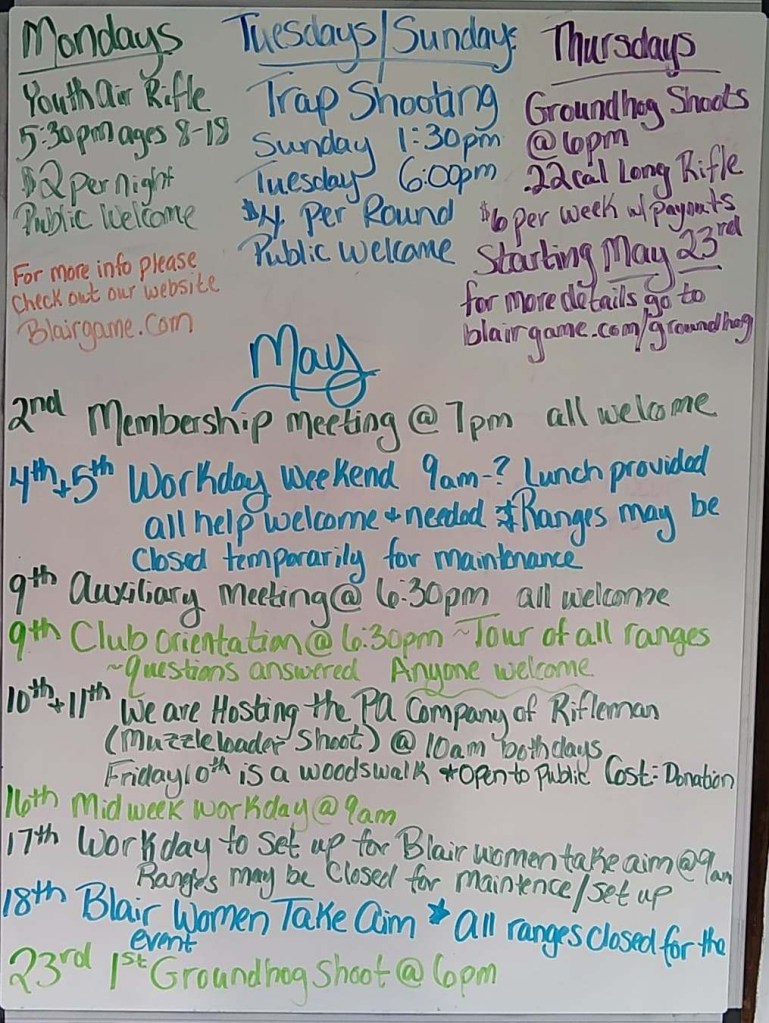 Mondays
Youth Air Rifle
5:30pm ages 8-18
$2 per night
Public Welcome
For more info please
check out our website
Blairgame.com
Tuesdays/Sundays
Trap Shooting
Sunday 1:30pm
Tuesday 6:00pm
$4 Per Round
Public Welcome
Thursdays
Groundhog Shoots
@ 6pm
.22cal Long Rifle
$6 per week w/payouts
Starting May 23rd
for more details go to
blairgame.com/groundhog
May
2nd Membership meeting @ 7pm all welcome
4th + 5th Workday Weekend 9am-? Lunch provided
all help welcome + needed * Ranges may be
closed temporarily for maintenance
9th Auxiliary meeting @ 6:30pm all welcome
9th Club orientation @ 6:30pm ~Tour of all ranges
~questions answered Anyone welcome
10th + 11th We are Hosting the PA Company of Rifleman
(Muzzleloader Shoot) @ 10am both days
Friday 10th is a woodswalk *Open to Public Cost: Donation
16th Midweek workday @ 9am
17th Workday to set up for Blair women take aim @ 9am
Ranges may be closed for maintence/set up
18th Blair Women Take Aim * all ranges closed for the
event
23rd 1st Groundhog Shoot @ 6pm